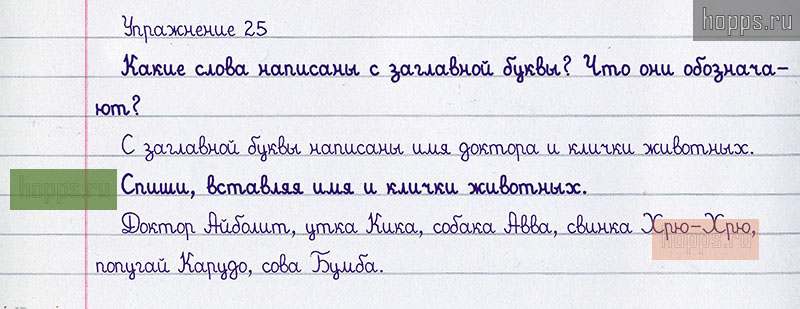 hopps.ru
Упражнение 25
Какие слова написаны с заглавной буквы? Что они обознача-
ют?
С заглавной буквы написаны имя доктора и клички животных.
hopps.ru
Спиши, вставляя имя и клички животных.
Доктор Айболит, утка Кика, собака Авва, свинка Хрю-Хрю,
hopps.ru
попугай Карудо, сова Бумба.